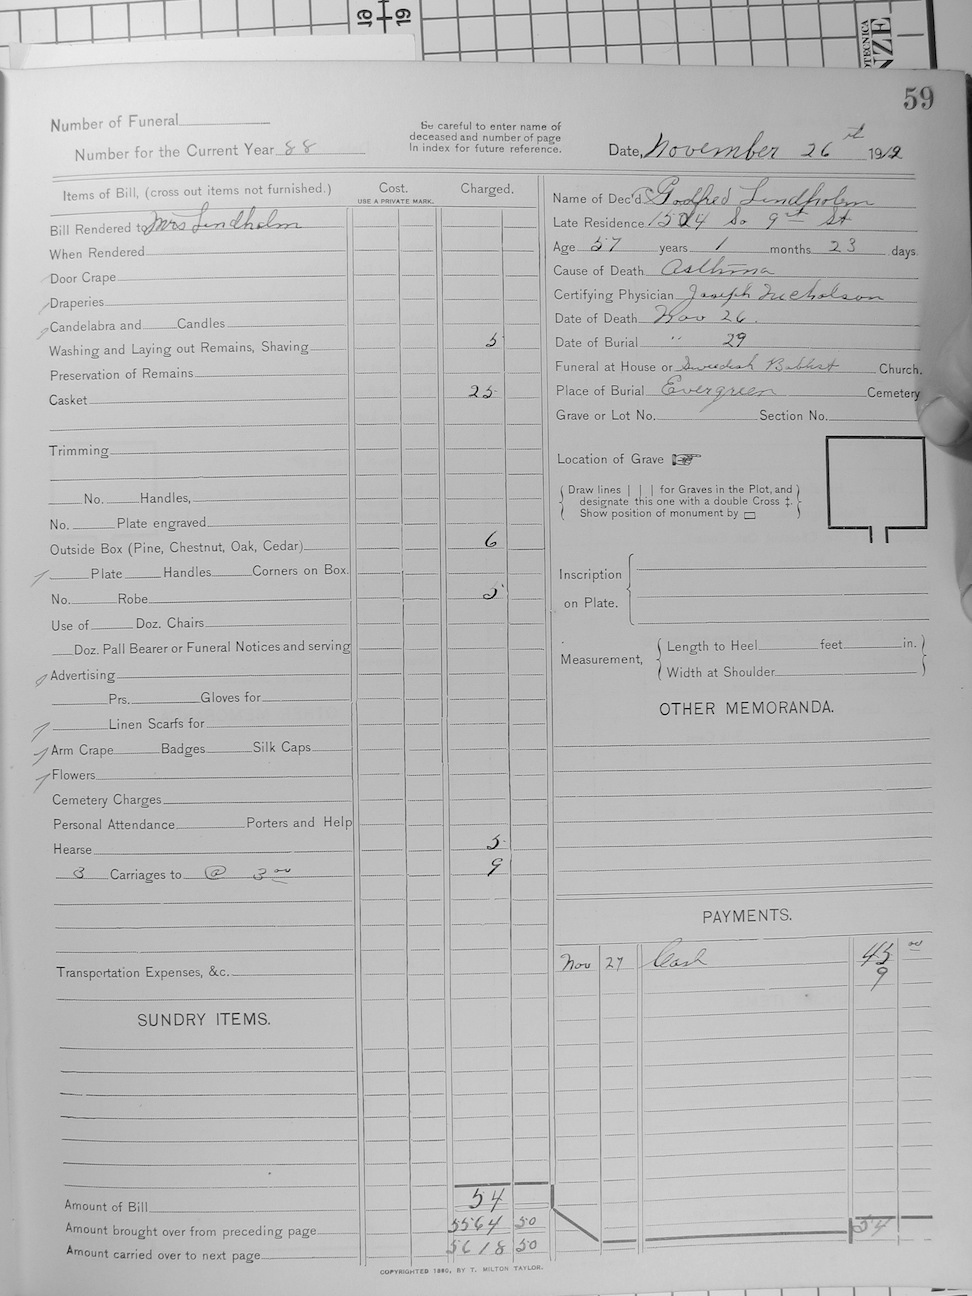 19
59
Number of Funeral
Number for the Current Year 88
Be careful to enter name of
deceased and number of page
In index for future reference.
Date, November 26 st 1912
Items of Bill, (cross out items not furnished.)
Cost.
USE A PRIVATE MARK.
Charged.
Bill Rendered to Mrs Lindholm
When Rendered
Door Crape
Draperies
Candelabra and Candles
Washing and Laying out Remains, Shaving 5
Preservation of Remains
Casket 25
Trimming
No. Handles,
No. Plate engraved
Outside Box (Pine, Chestnut, Oak, Cedar) 6
Plate Handles Corners on Box.
No. Robe 5
Use of Doz. Chairs
Doz. Pall Bearer or Funeral Notices and serving
Advertising
Prs. Gloves for
Linen Scarfs for
Arm Crape Badges Silk Caps
Flowers
Cemetery Charges
Personal Attendance Porters and Help
Hearse 5
3 Carriages to @ 3 00 9
Transportation Expenses, &c.
SUNDRY ITEMS.
Amount of Bill 54
Amount brought over from preceding page 5564 50
Amount carried over to next page 5618 50
Name of Dec'd Godfred Lindholm
Late Residence 1524 So 9th St
Age 57 years 1 months 23 days.
Cause of Death Asthma
Certifying Physician Joseph Nicholson
Date of Death Nov 26.
Date of Burial " 29
Funeral at House or Swedish Babtist Church.
Place of Burial Evergreen Cemetery
Grave or Lot No. Section No.
Location of Grave
Draw lines | | | for Graves in the Plot, and
designate this one with a double Cross ‡.
Show position of monument by
Inscription
on Plate.
Measurement,
Length to Heel feet in.
Width at Shoulder
OTHER MEMORANDA.
PAYMENTS.
Nov 27 Cash 45 00
9
54
COPYRIGHTED 1890, BY T. MILTON TAYLOR.